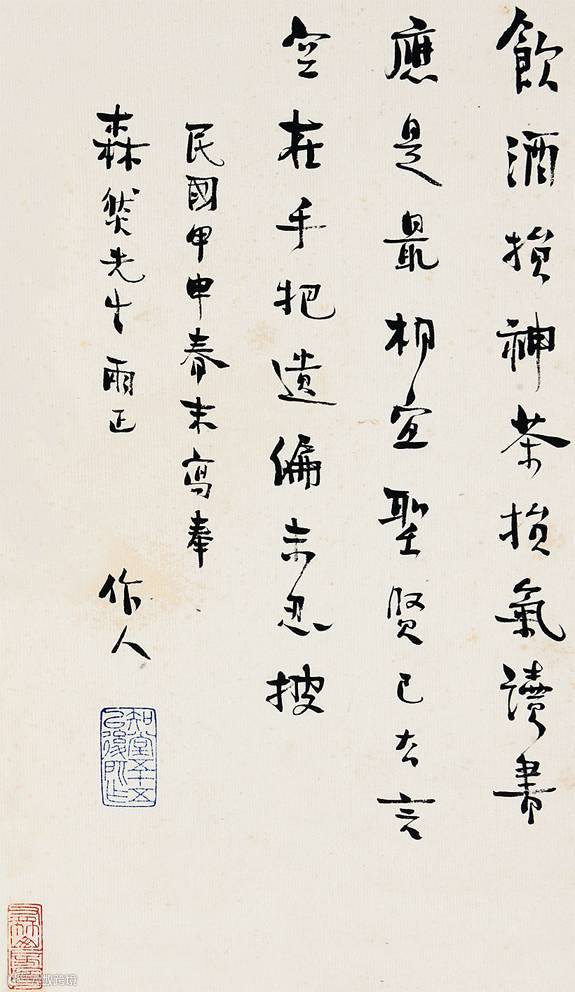 飲酒損神茶損氣讀書
應是最相宜聖賢已去言
空在手把遺編未忍披
民國甲申春末寫奉
森然先生雨正
作人
知堂五十五
以後所作